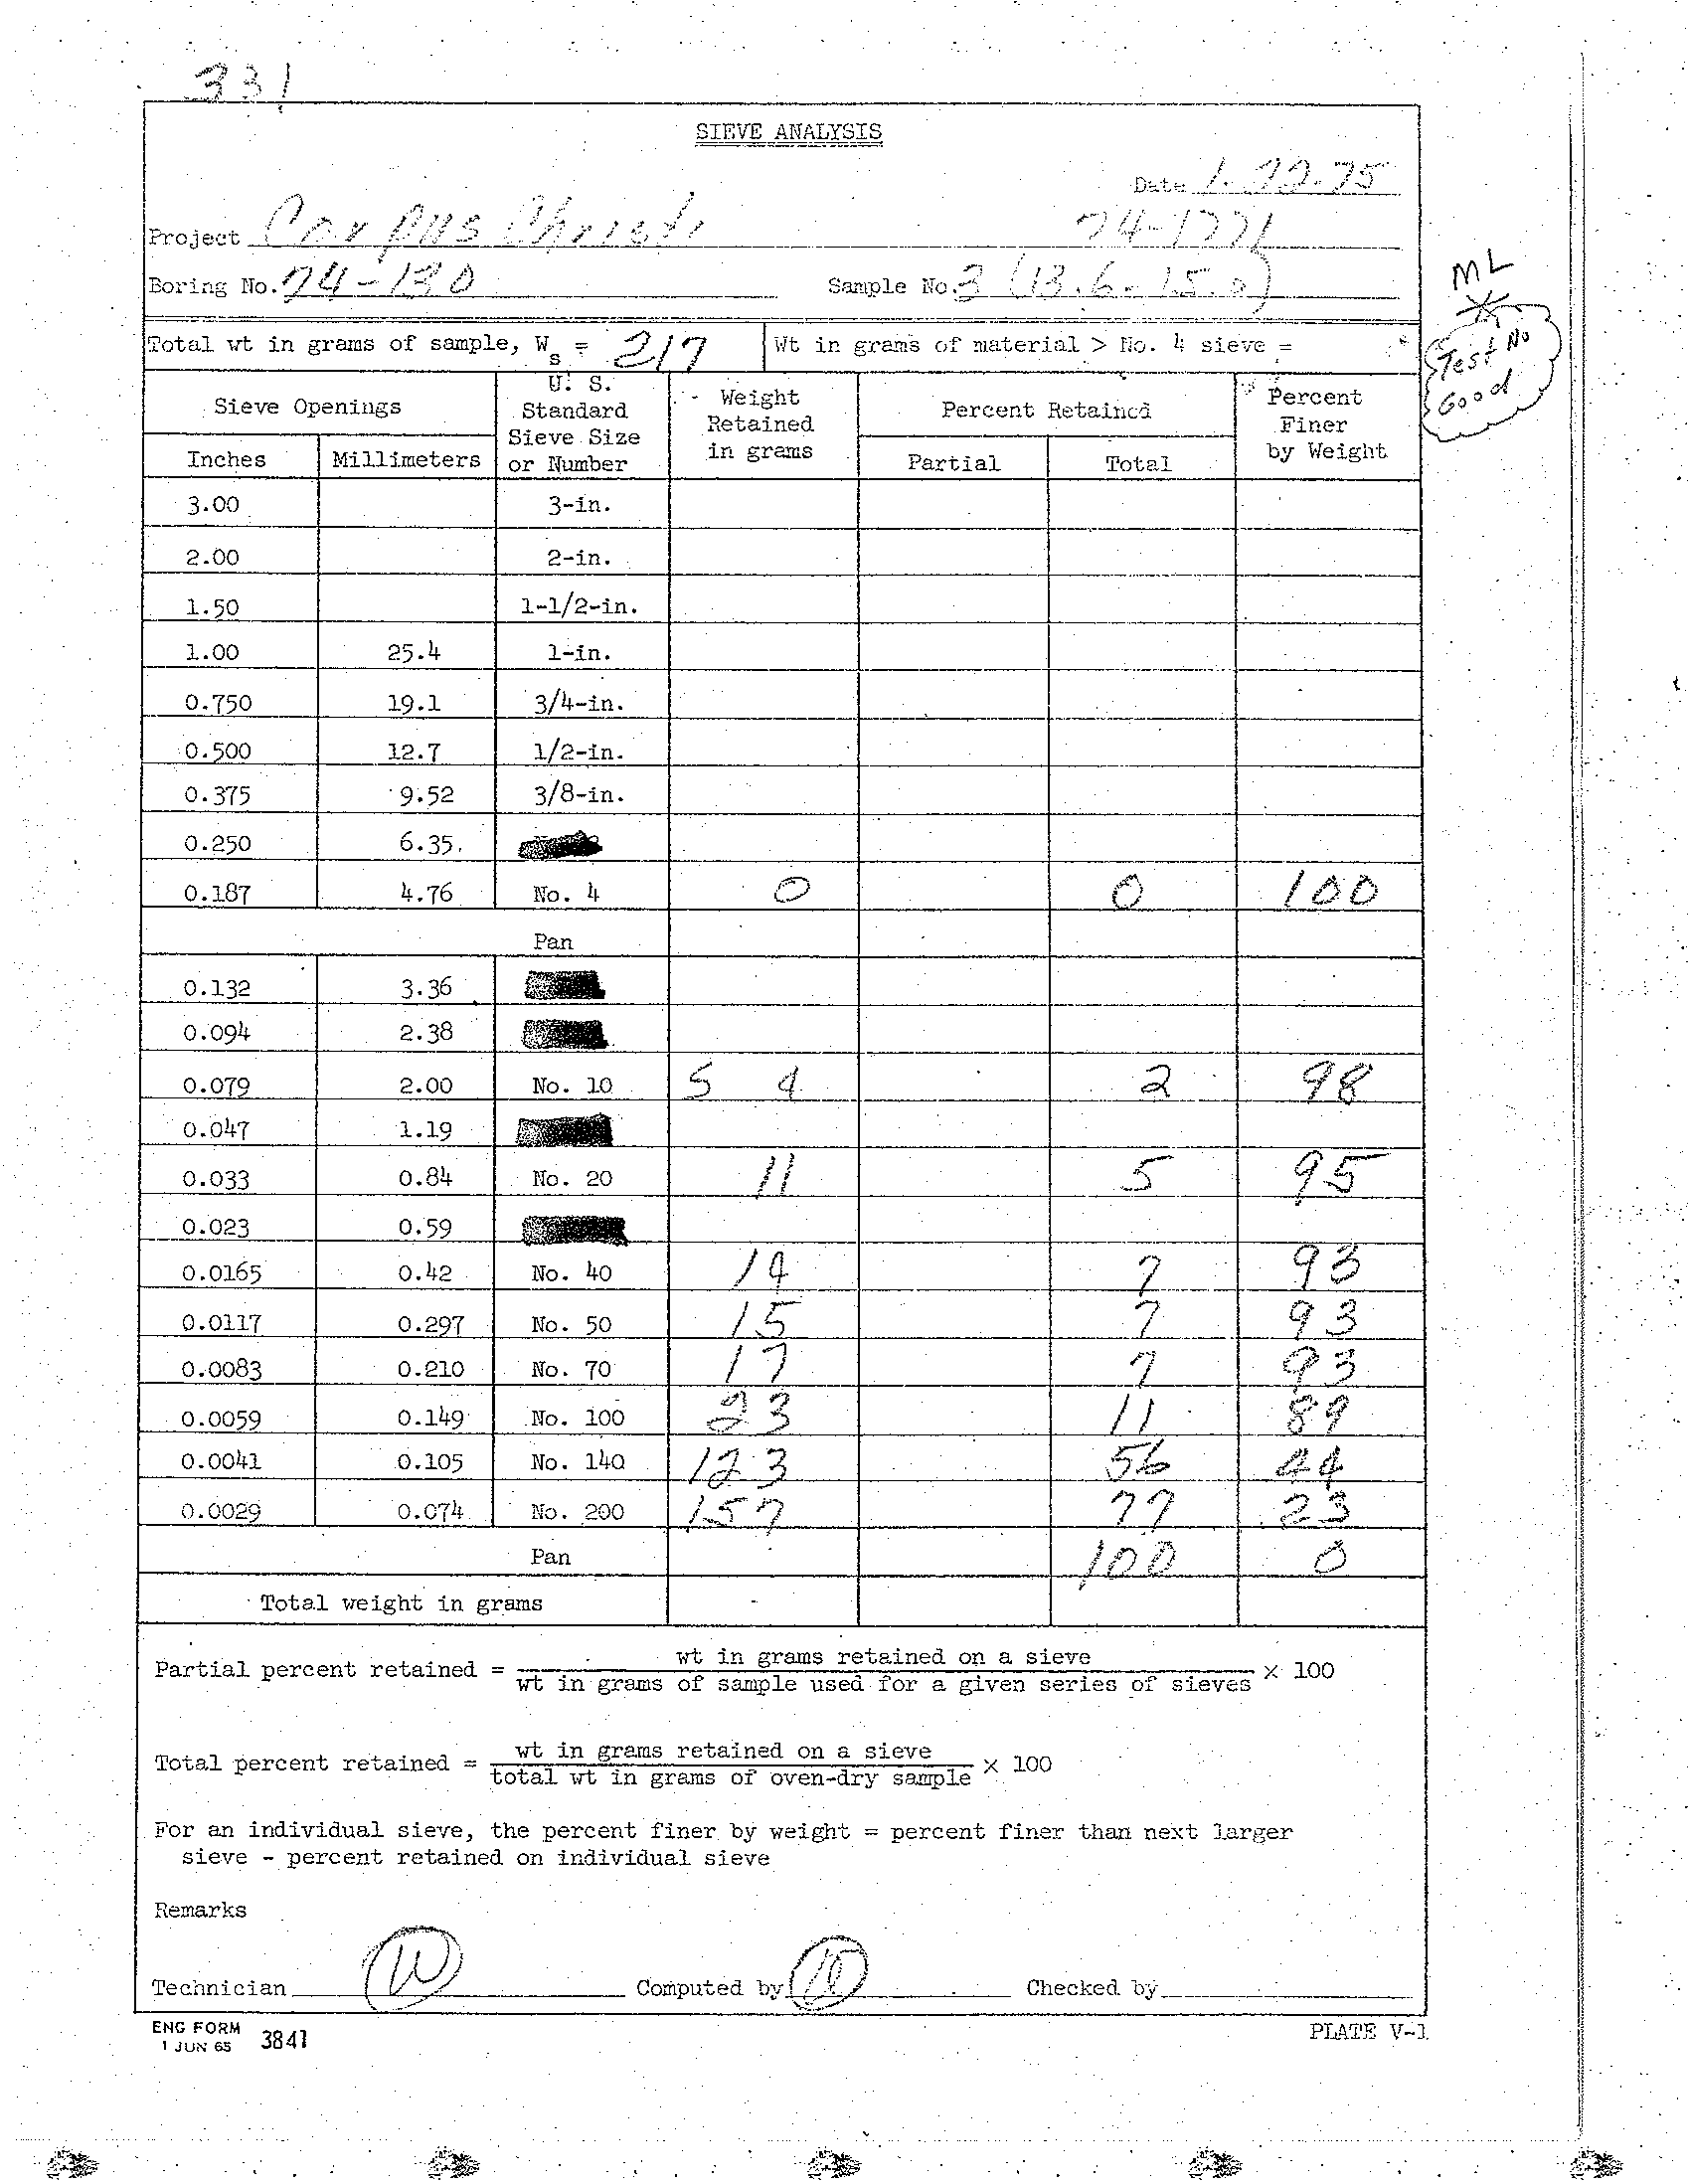 331
SIEVE ANALYSIS
Date 1.22.75
Project Corpus Christi 74-1771
Boring No. 74-130 Sample No. 3 (13.6-15.0)
ML
*
Test No
Good
Total wt in grams of sample, Ws = 217 Wt in grams of material > No. 4 sieve =
Sieve Openings U. S. Standard Sieve Size or Number Weight Retained in grams Percent Retained Percent Finer by Weight
Inches Millimeters Partial Total
3.00 3-in.
2.00 2-in.
1.50 1-1/2-in.
1.00 25.4 1-in.
0.750 19.1 3/4-in.
0.500 12.7 1/2-in.
0.375 9.52 3/8-in.
0.250 6.35
0.187 4.76 No. 4 0 0 100
Pan
0.132 3.36
0.094 2.38
0.079 2.00 No. 10 5 4 2 98
0.047 1.19
0.033 0.84 No. 20 11 5 95
0.023 0.59
0.0165 0.42 No. 40 14 7 93
0.0117 0.297 No. 50 15 7 93
0.0083 0.210 No. 70 17 7 93
0.0059 0.149 No. 100 23 11 89
0.0041 0.105 No. 140 123 56 44
0.0029 0.074 No. 200 157 77 23
Pan 100 0
Total weight in grams
Partial percent retained = wt in grams retained on a sieve / wt in grams of sample used for a given series of sieves × 100
Total percent retained = wt in grams retained on a sieve / total wt in grams of oven-dry sample × 100
For an individual sieve, the percent finer by weight = percent finer than next larger
sieve - percent retained on individual sieve
Remarks
Technician W Computed by Checked by
ENG FORM 3841
1 JUN 65
PLATE V-1